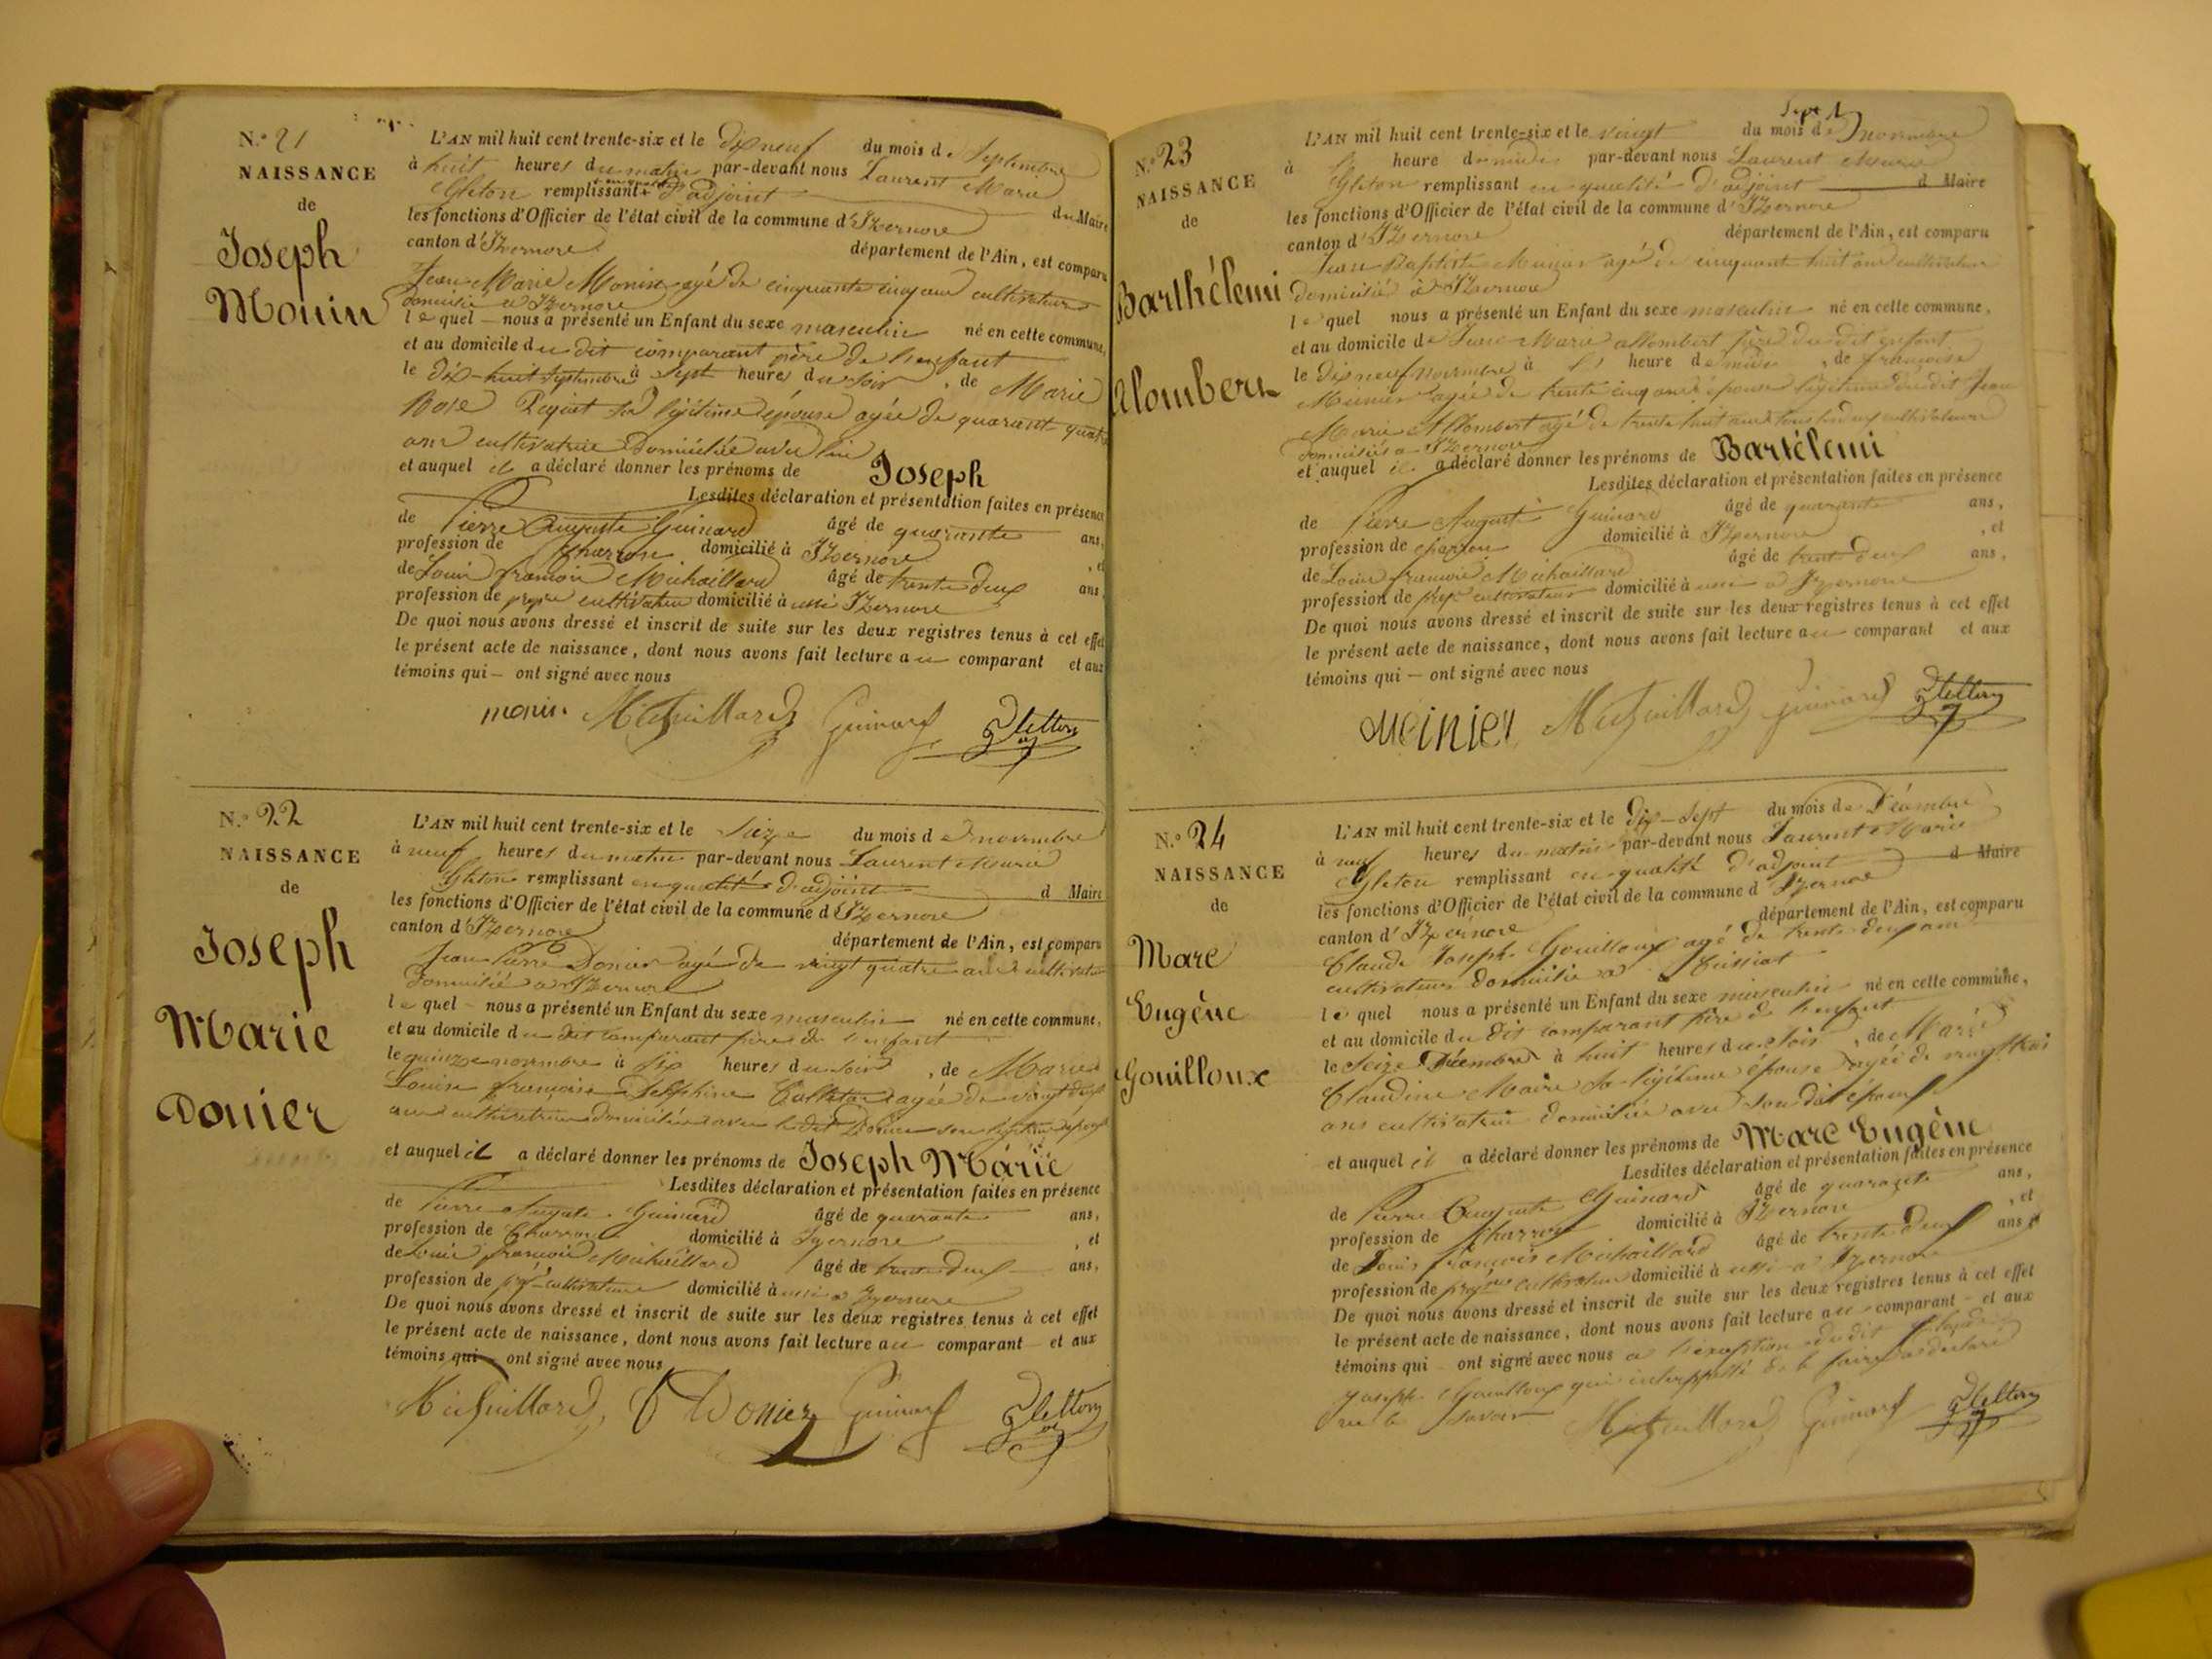 N.° 21
NAISSANCE
de
Joseph
Monin
L'AN mil huit cent trente-six et le dix neuf du mois de Septembre
à huit heures du matin par-devant nous Laurent Marie
Gleton remplissant en qualité d'adjoint du Maire
les fonctions d'Officier de l'état civil de la commune d'Izernore
canton d'Izernore département de l'Ain, est comparu
Jean Marie Monin agé de cinquante cinq ans cultivateur
domicilié a Izernore
lequel nous a présenté un Enfant du sexe masculin né en cette commune,
et au domicile du dit comparant père de l'enfant
le dix-huit Septembre à Sept heures du Soir, de Marie
Rose Sa légitime épouse agée de quarante-quatre
ans cultivatrice Domiciliée avec lui
et auquel il a déclaré donner les prénoms de Joseph
Lesdites déclaration et présentation faites en présence
de Pierre Auguste Guinard âgé de quarante ans,
profession de charron domicilié à Izernore, et
de Louis françois Michaillard âgé de trente deux ans,
profession de propre cultivateur domicilié à aussi Izernore
De quoi nous avons dressé et inscrit de suite sur les deux registres tenus à cet effet
le présent acte de naissance, dont nous avons fait lecture au comparant et aux
témoins qui — ont signé avec nous
monin Michaillard Guinard Gletton
N.° 22
NAISSANCE
de
Joseph
Marie
Donier
L'AN mil huit cent trente-six et le Seize du mois de novembre
à neuf heures du matin par-devant nous Laurent Marie
Gleton remplissant en qualité d'adjoint d Maire
les fonctions d'Officier de l'état civil de la commune d'Izernore
canton d'Izernore département de l'Ain, est comparu
Jean Pierre Donier agé de vingt quatre ans cultivateur
Domicilié a Izernore
lequel nous a présenté un Enfant du sexe masculin né en cette commune,
et au domicile du dit comparant père de l'enfant
le quinze novembre à six heures du soir, de Marie
Louise françoise Delphine agée de vingt deux
ans cultivatrice domiciliée avec le dit Donier son légitime époux
et auquel il a déclaré donner les prénoms de Joseph Marie
Lesdites déclaration et présentation faites en présence
de Pierre Auguste Guinard âgé de quarante ans,
profession de Charron domicilié à Izernore, et
de Louis françois Michaillard âgé de trente deux ans,
profession de pre cultivateur domicilié à aussi a Izernore
De quoi nous avons dressé et inscrit de suite sur les deux registres tenus à cet effet
le présent acte de naissance, dont nous avons fait lecture au comparant et aux
témoins qui — ont signé avec nous
Michaillard, Donier Guinard Gletton
N.° 23
NAISSANCE
de
Barthélemi
Alombert
L'AN mil huit cent trente-six et le vingt du mois de novembre
à heure de midi par-devant nous Laurent Marie
Gleton remplissant en qualité d'adjoint d Maire
les fonctions d'Officier de l'état civil de la commune d'Izernore
canton d'Izernore département de l'Ain, est comparu
Jean Baptiste agé de cinquante huit ans cultivateur
domicilié à Izernore
lequel nous a présenté un Enfant du sexe masculin né en cette commune,
et au domicile de Jean Marie allombert père du dit enfant
le dix neuf novembre à heure de midi, de françoise
Meinier agée de trente cinq ans épouse légitime du dit Jean
Marie Allombert agé de trente huit ans tous les deux cultivateurs
domiciliés a Izernore
et auquel il a déclaré donner les prénoms de Bartélemi
Lesdites déclaration et présentation faites en présence
de Pierre Auguste Guinard âgé de quarante ans,
profession de charron domicilié à Izernore, et
de Louis françois Michaillard âgé de trente deux ans,
profession de pre cultivateur domicilié à aussi a Izernore
De quoi nous avons dressé et inscrit de suite sur les deux registres tenus à cet effet
le présent acte de naissance, dont nous avons fait lecture au comparant et aux
témoins qui — ont signé avec nous
Meinier Michaillard Guinard Gletton
N.° 24
NAISSANCE
de
Marc
Eugène
Gouilloux
L'AN mil huit cent trente-six et le dix-Sept du mois de Décembre
à neuf heures du matin par-devant nous Laurent Marie
Gleton remplissant en qualité d'adjoint d Maire
les fonctions d'Officier de l'état civil de la commune d Izernore
canton d'Izernore département de l'Ain, est comparu
Claude Joseph Gouilloux agé de trente deux ans
cultivateur domicilié a Ceissiat
lequel nous a présenté un Enfant du sexe masculin né en cette commune,
et au domicile du dit comparant père de l'enfant
le Seize Décembre à huit heures du soir, de Marie
Claudine Maire Sa légitime épouse agée de vingt trois
ans cultivatrice domiciliée avec son dit époux
et auquel il a déclaré donner les prénoms de Marc Eugène
Lesdites déclaration et présentation faites en présence
de Pierre Auguste Guinard âgé de quarante ans,
profession de charron domicilié à Izernore, et
de Louis françois Michaillard âgé de trente deux ans,
profession de propre cultivateur domicilié à aussi a Izernore
De quoi nous avons dressé et inscrit de suite sur les deux registres tenus à cet effet
le présent acte de naissance, dont nous avons fait lecture au comparant et aux
témoins qui ont signé avec nous a l'exception du dit Claude
Joseph Gouilloux qui interppellé de le faire a déclaré
ne le savoir Michaillard Guinard Gletton